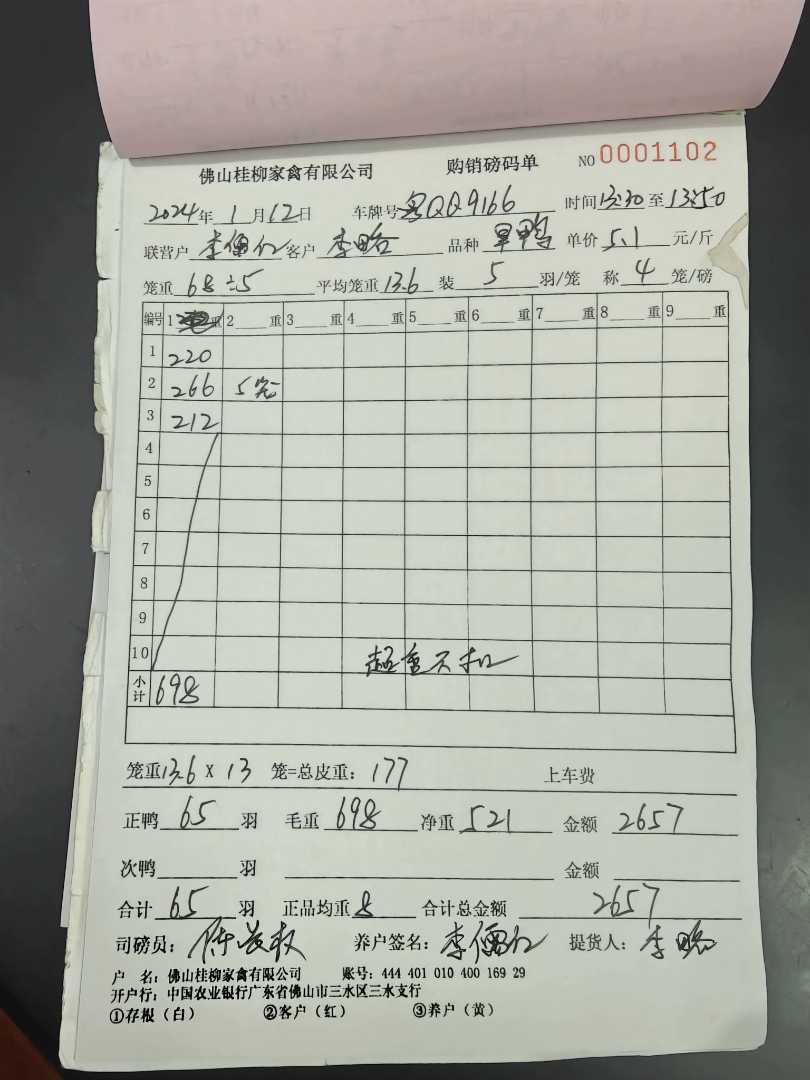 佛山桂柳家禽有限公司 购销磅码单 NO 0001102
2024年 1月12日 车牌号 粤QQ9166 时间13:30至13:50
联营户 李儒仁 客户 李略 品种 旱鸭 单价 5.1 元/斤
笼重 68÷5 平均笼重 13.6 装 5 羽/笼 称 4 笼/磅
编号 1 重 2 重 3 重 4 重 5 重 6 重 7 重 8 重 9 重
1 220
2 266 5笼
3 212
4
5
6
7
8
9
10 超重不扣
小计 698
笼重13.6 X 13 笼=总皮重: 177 上车费
正鸭 65 羽 毛重 698 净重 521 金额 2657
次鸭 羽 金额
合计 65 羽 正品均重 8 合计总金额 2657
司磅员: 养户签名: 李儒仁 提货人: 李略
户 名: 佛山桂柳家禽有限公司 账号: 444 401 010 400 169 29
开户行: 中国农业银行广东省佛山市三水区三水支行
①存根(白) ②客户(红) ③养户(黄)